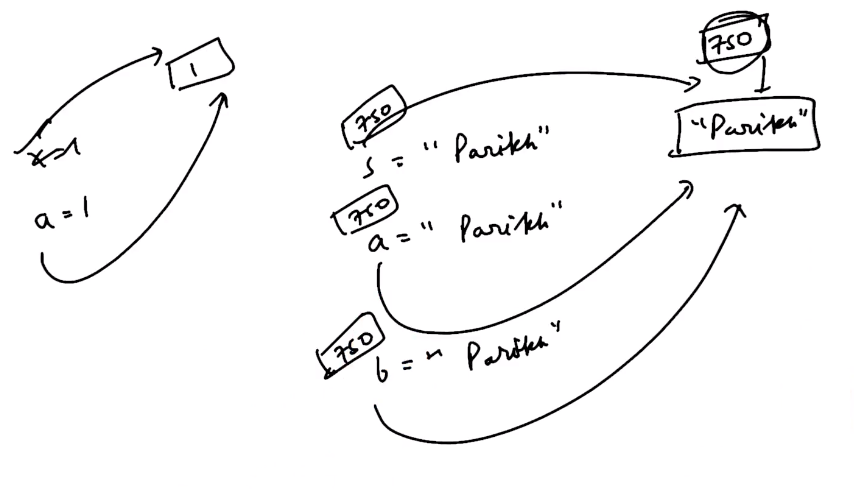 1
x=1
a = 1
750
"Parikh"
750
s = "Parikh"
750
a = "Parikh"
750
b = "Parikh"